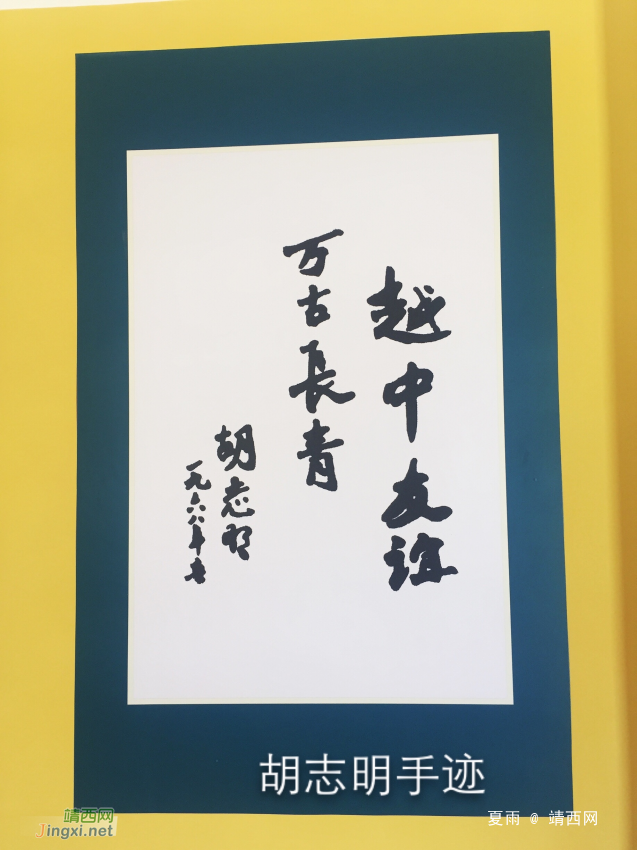 越中友谊
万古長青
胡志明
一九六八年春
胡志明手迹
靖西网
Jingxi.net
夏雨 @ 靖西网